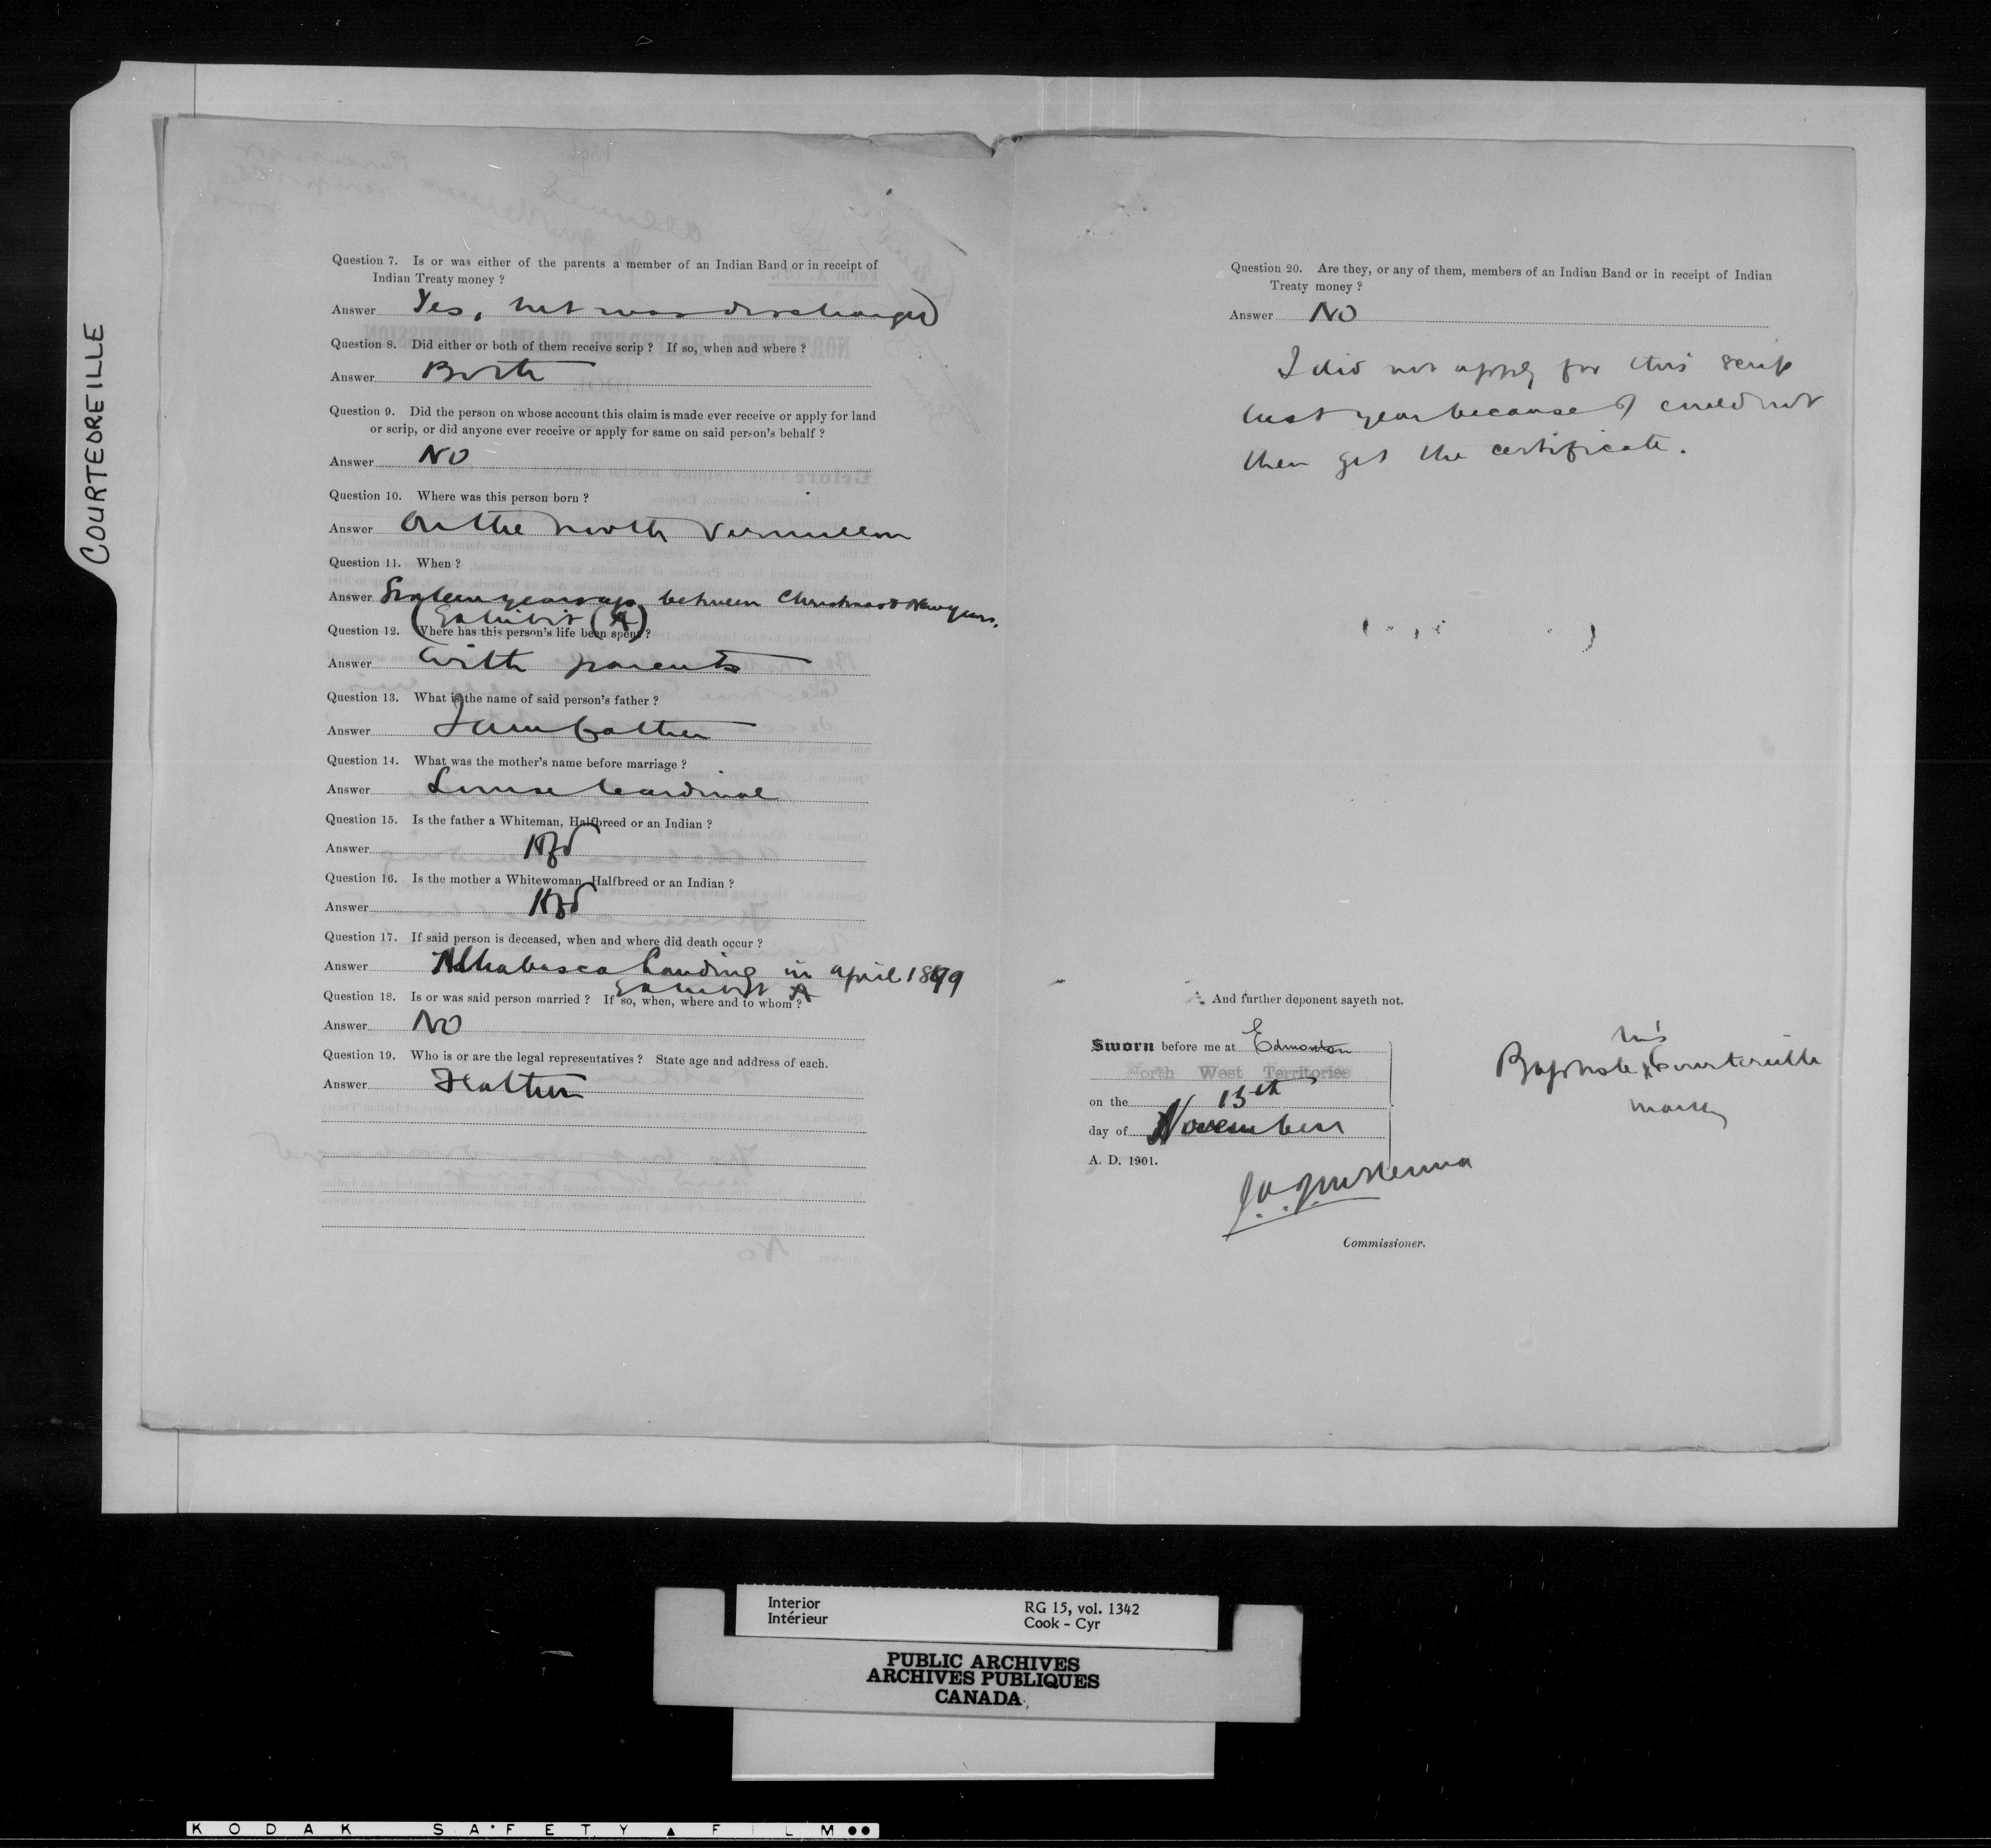 COURTEOREILLE
Question 7. Is or was either of the parents a member of an Indian Band or in receipt of
Indian Treaty money ?
Answer Yes, but was discharged
Question 8. Did either or both of them receive scrip ? If so, when and where ?
Answer Both
Question 9. Did the person on whose account this claim is made ever receive or apply for land
or scrip, or did anyone ever receive or apply for same on said person's behalf ?
Answer No
Question 10. Where was this person born ?
Answer On the North Vermillion
Question 11. When ?
Answer years ago between Christmas & New years.
(Exhibit (A)
Question 12. Where has this person's life been spent ?
Answer With parents
Question 13. What is the name of said person's father ?
Answer I am father
Question 14. What was the mother's name before marriage ?
Answer Louise Cardinal
Question 15. Is the father a Whiteman, Halfbreed or an Indian ?
Answer Hfd
Question 16. Is the mother a Whitewoman, Halfbreed or an Indian ?
Answer Hfd
Question 17. If said person is deceased, when and where did death occur ?
Answer Athabasca Landing in april 1899
Exhibit A
Question 18. Is or was said person married ? If so, when, where and to whom ?
Answer No
Question 19. Who is or are the legal representatives ? State age and address of each.
Answer Father
Question 20. Are they, or any of them, members of an Indian Band or in receipt of Indian
Treaty money ?
Answer No
I did not apply for this scrip
last year because I could not
then get the certificate.
And further deponent sayeth not.
Sworn before me at Edmonton
North West Territories
on the 13th
day of November
A. D. 1901.
his
Baptiste x Courtoreille
mark
J A J McKenna
Commissioner.
Interior
Intérieur
RG 15, vol. 1342
Cook - Cyr
PUBLIC ARCHIVES
ARCHIVES PUBLIQUES
CANADA
KODAK SAFETY FILM